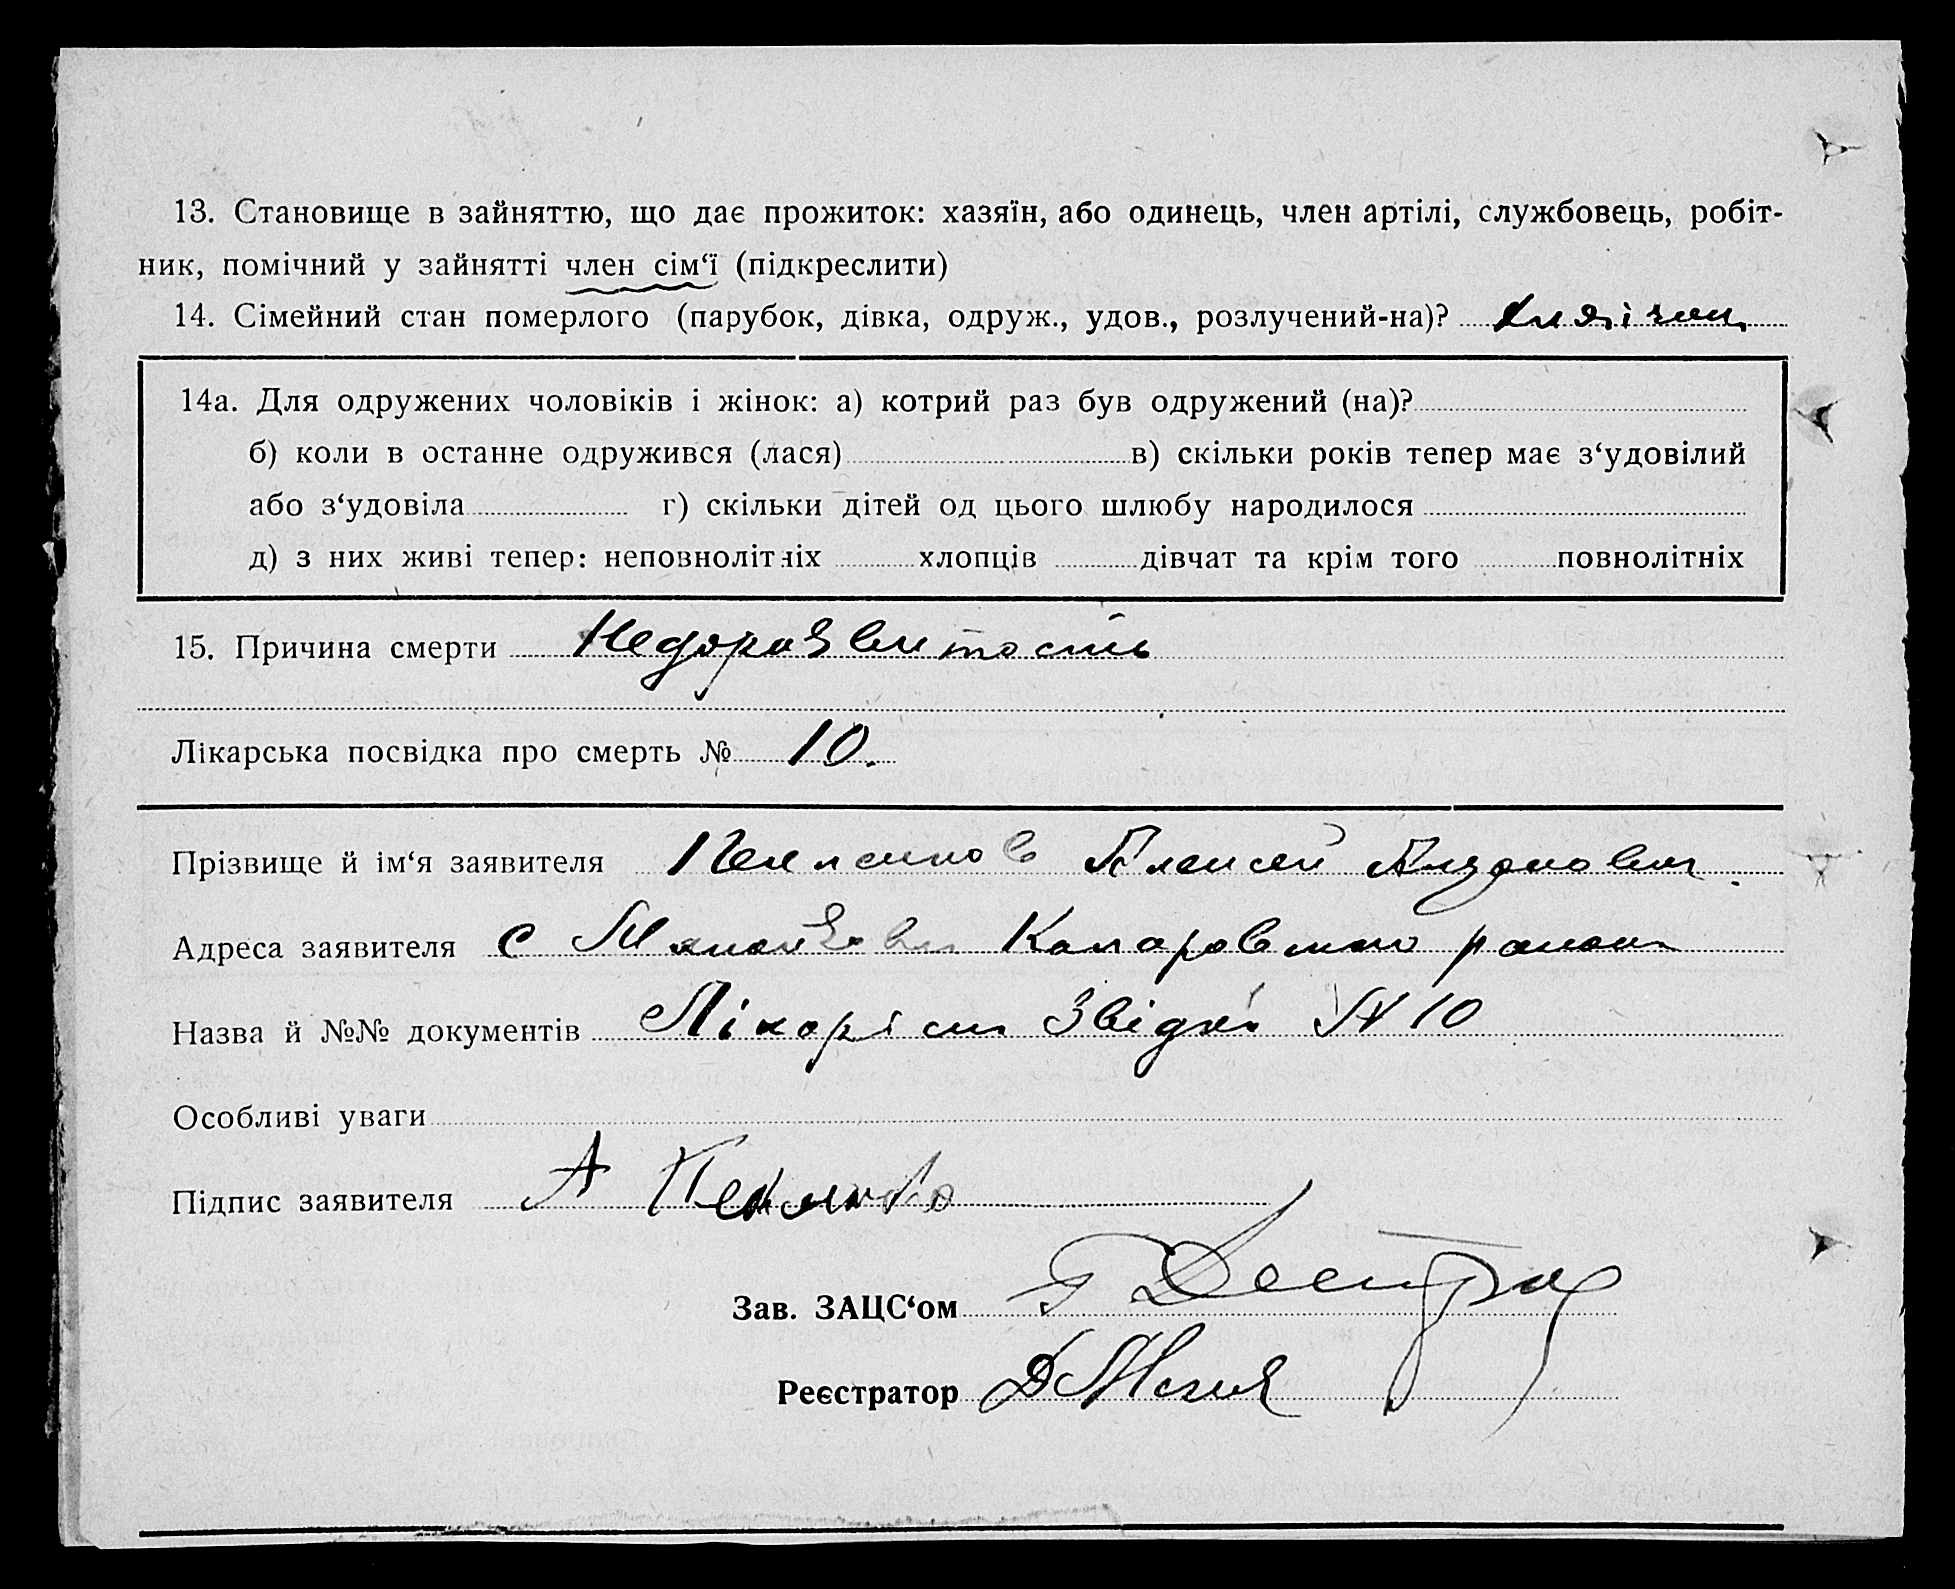 13. Становище в зайняттю, що дає прожиток: хазяїн, або одинець, член артілі, службовець, робіт-
ник, помічний у зайнятті член сім‘ї (підкреслити)
14. Сімейний стан померлого (парубок, дівка, одруж., удов., розлучений-на)?
14а. Для одружених чоловіків і жінок: а) котрий раз був одружений (на)?
б) коли в останне одружився (лася) в) скільки років тепер має з‘удовілий
або з‘удовіла г) скільки дітей од цього шлюбу народилося
д) з них живі тепер: неповнолітніх хлопців дівчат та крім того повнолітніх
15. Причина смерти Недоразвитость
Лікарська посвідка про смерть № 10.
Прізвище й ім‘я заявителя Алексей
Адреса заявителя с
Назва й №№ документів N 10
Особливі уваги
Підпис заявителя А
Зав. ЗАЦС‘ом
Реєстратор